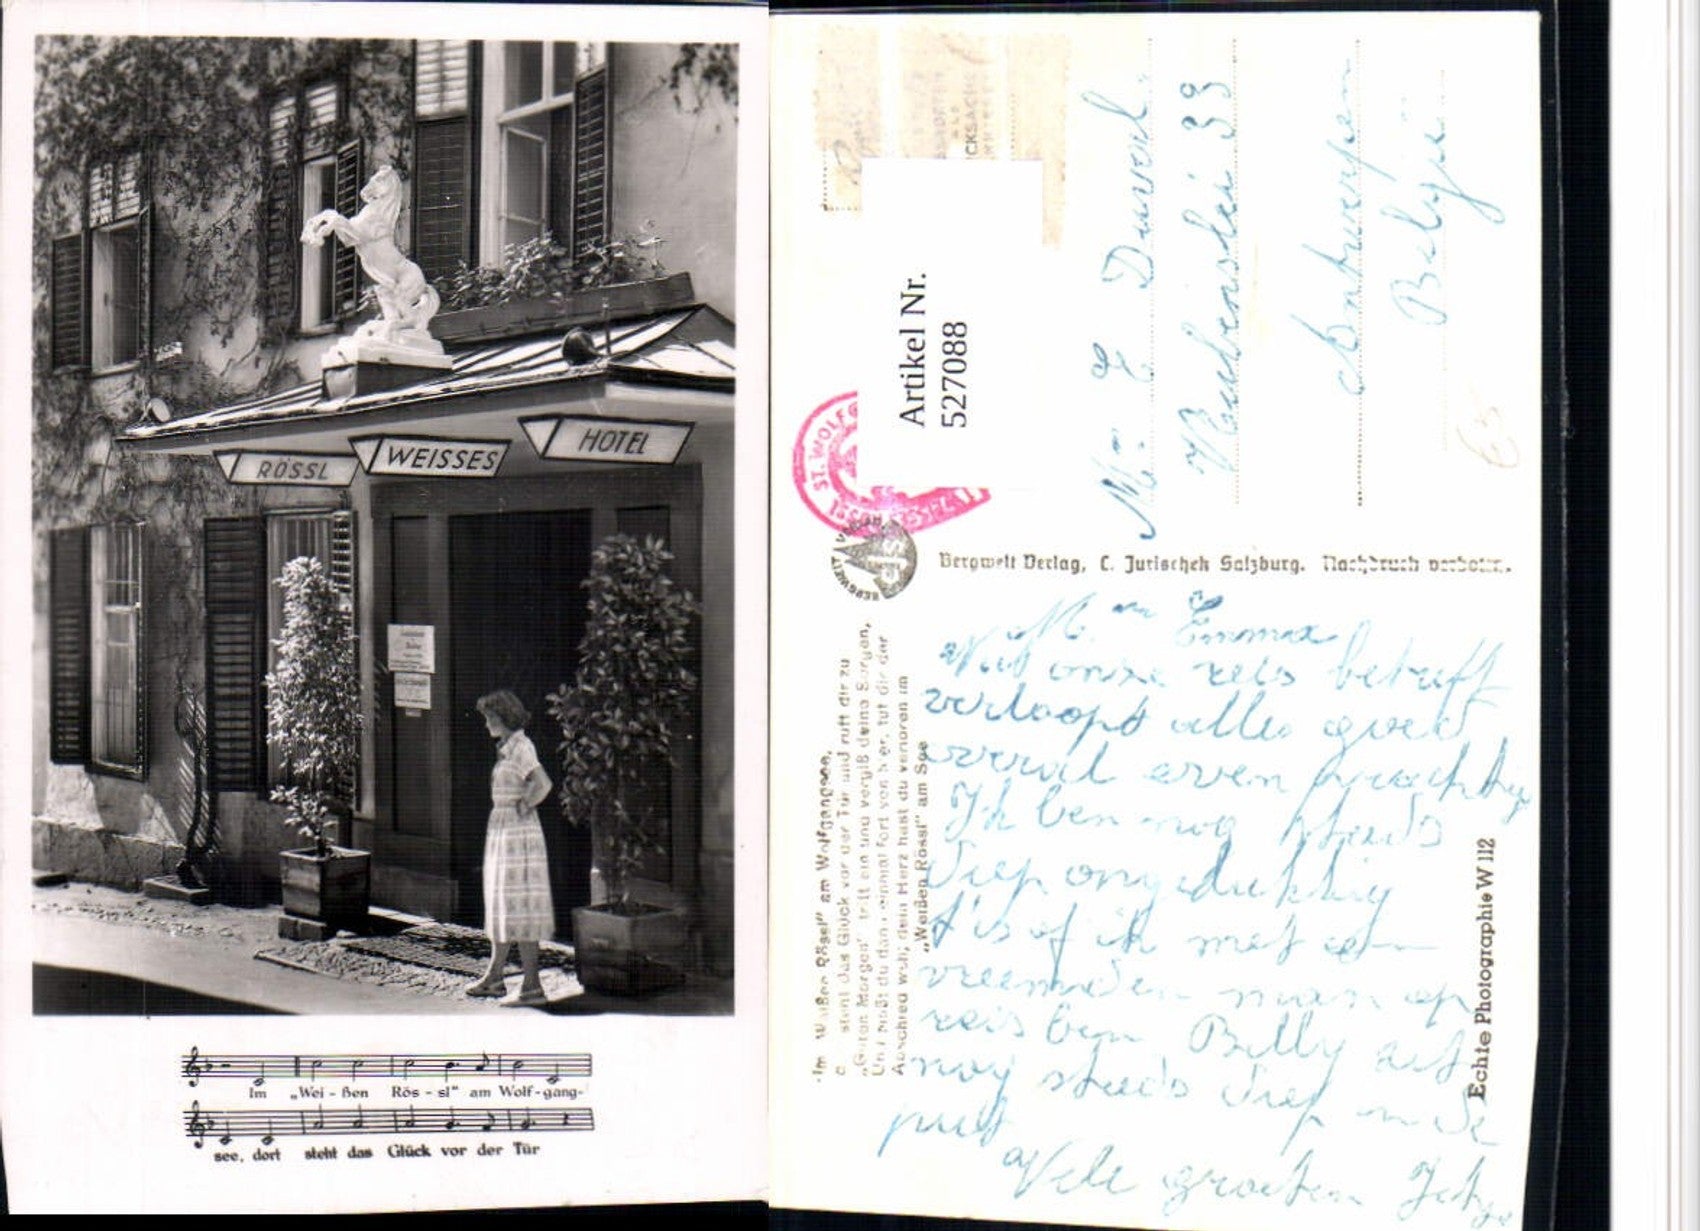 RÖSSL
WEISSES
HOTEL
Im „Wei - ßen Rös - sl“ am Wolf-gang-
see, dort steht das Glück vor der Tür
Artikel Nr.
527088
ST. WOLFG
BERGWELT
Bergwelt Verlag, C. Jurischek Salzburg. Nachdruck verboten.
„Im Weißen Rössl“ am Wolfgangsee,
da steht das Glück vor der Tür und ruft dir zu
„Guten Morgen“ tritt ein und vergiß deine Sorgen,
Und mußt du dann einmal fort von hier, tut dir der
Abschied weh; dein Herz hast du verloren im
„Weißen Rössl“ am See
Echte Photographie W 112
Mr E
33
Antwerpen
België
M. en Emma
Wat onze reis betreft
verloopt alles goed
overal even prachtig
Ik ben nog steeds
diep ongelukkig
't is of ik met een
vreemden man op
reis ben Billy zit
nog steeds diep in de
put
Vele groeten